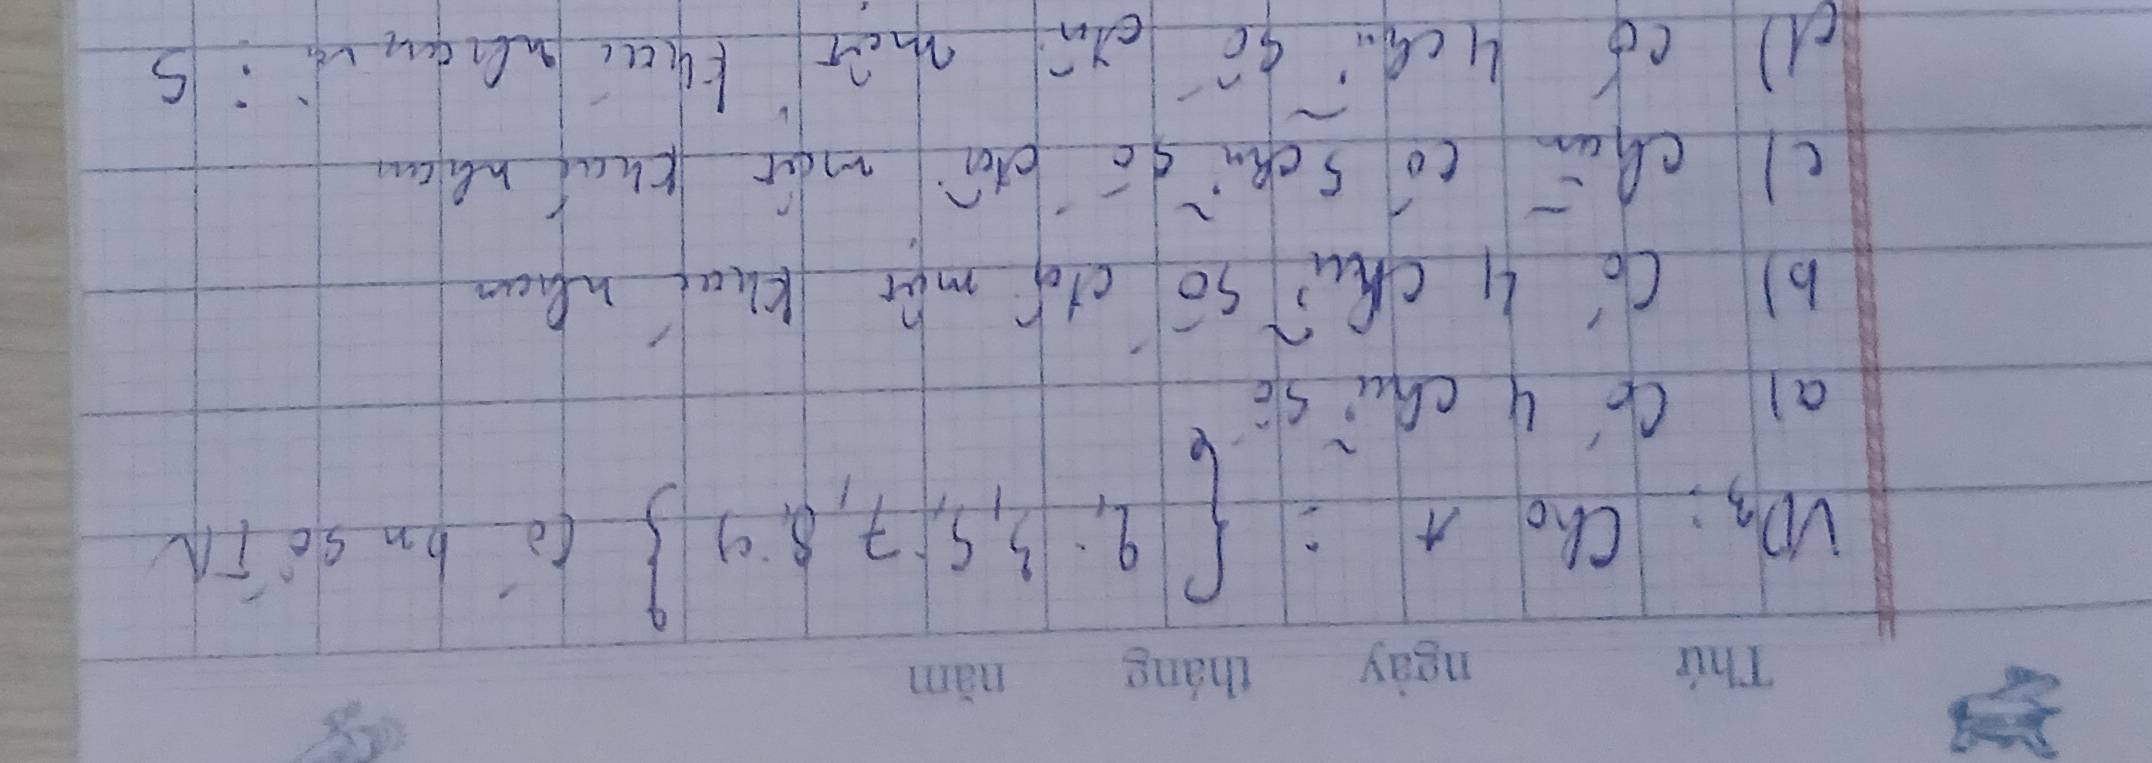 Thứ ngày tháng năm
VD3: Cho A = { 2, 3, 5, 7, 8, 9 } Có bn số TN
a) Có 4 chữ số
b) Có 4 chữ số đôi một khác nhau
c) chẵn có 5 chữ số đôi một khác nhau
d) có 4 chữ số đôi một khác nhau và ⋮ 5